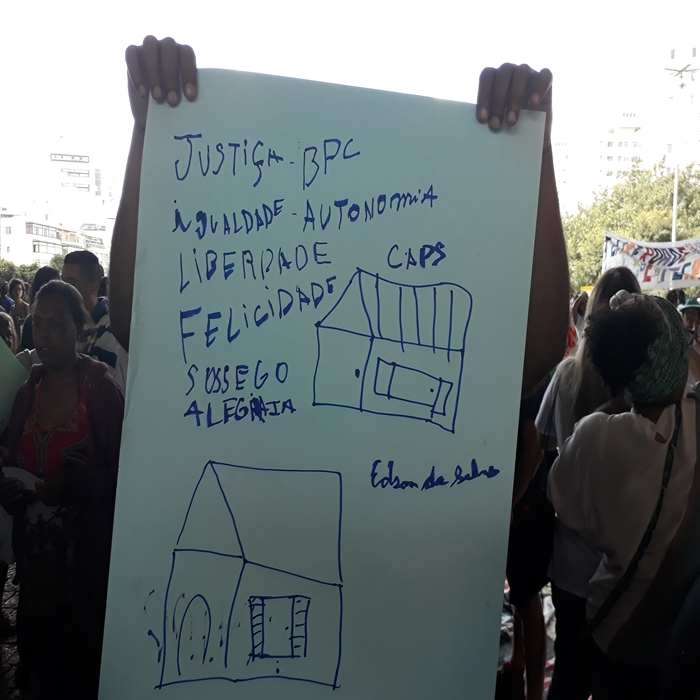 JUSTIÇA - BPC
IGUALDADE - AUTONOMIA
LIBERDADE
CAPS
FELICIDADE
SOSSEGO
ALEGRIA
Edson da Silva